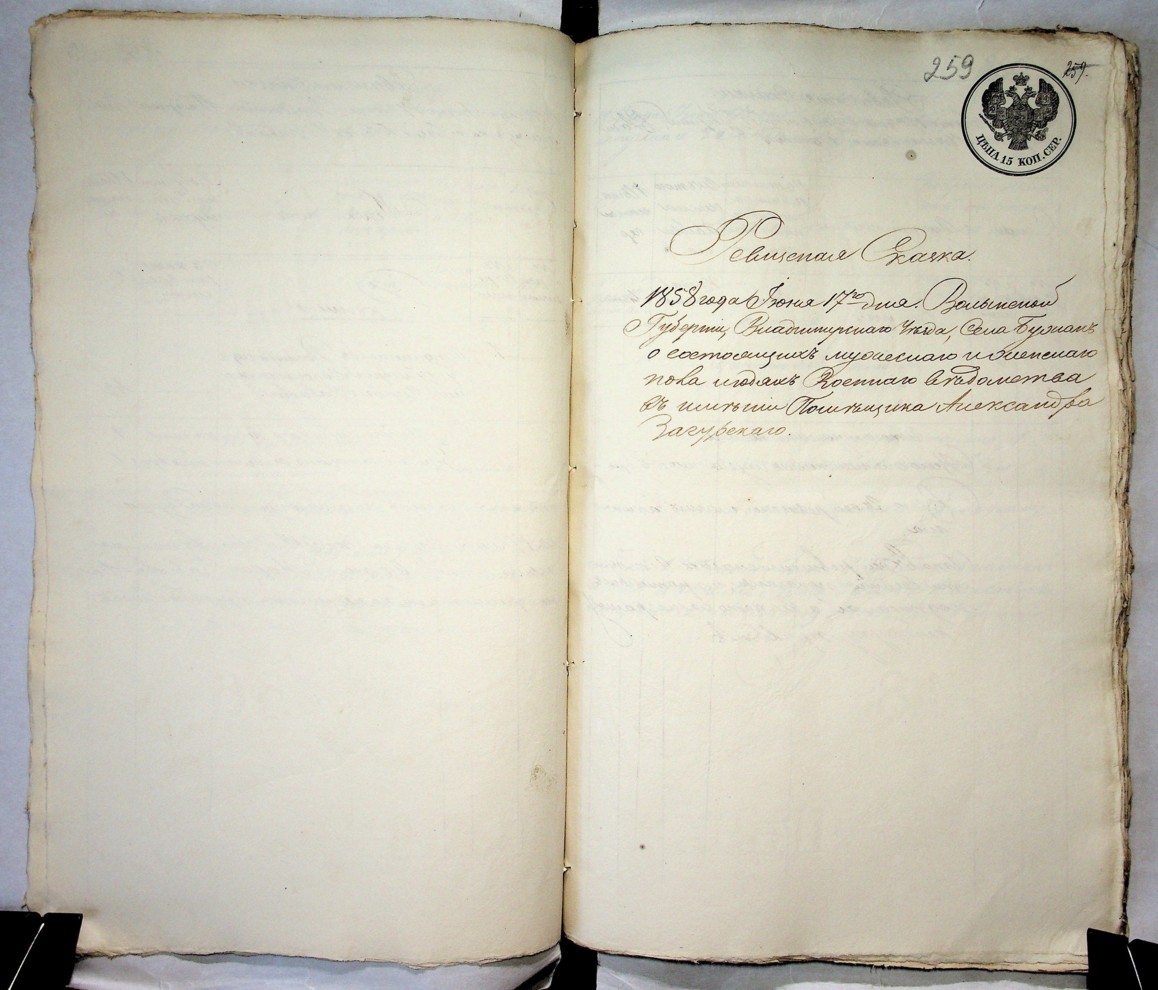 259
259.
ЦѢНА 15 КОП. СЕР.
Ревизская Сказка.
1858 года Июня 17го дня. Волынской
Губернии, Владимирскаго Уѣзда, Села Бужанъ
о состоящихъ мужескаго и женскаго
пола людяхъ Военнаго Вѣдомства
въ имѣнии Помѣщика Александра
Загурскаго.